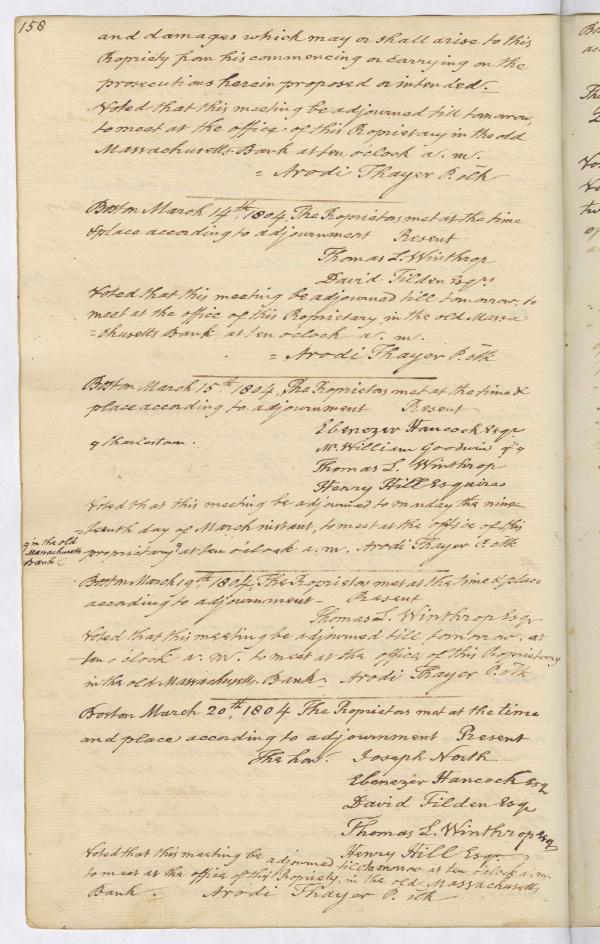 158
and damages which may or shall arise to this
Propriety from his commencing or carrying on the
prosecutions herein proposed or intended.
Voted that this meeting be adjourned till tomorrow,
to meet at the office of this Proprietary in the old
Massachusetts Bank at ten o'clock a. m.
= Arodi Thayer P. clk
Boston March 14th 1804, The Proprietors met at the time
& place according to adjournment Present
Thomas L. Winthrop
David Tilden Esqrs
Voted that this meeting be adjourned till tomorrow, to
meet at the office of this Propriety, in the old Massa
=chusetts Bank at ten o'clock a. m.
= Arodi Thayer P. clk
Boston March 15th 1804, The Proprietors met at the time &
place according to adjournment Present
Ebenezer Hancock Esqr
Mr. William Goodwin of
of Charlestown.
Thomas L. Winthrop
Henry Hill Esquires
Voted that this meeting be adjourned to monday the nine
=teenth day of March instant, to meet at the office of this
propriety at ten o'clock a. m. Arodi Thayer P. clk
in the old
Massachusetts
Bank
Boston March 19th 1804, The Proprietors met at the time & place
according to adjournment - Present
Thomas L. Winthrop Esqr
Voted that this meeting be adjourned till tomorrow, at
ten o'clock a. m. to meet at the office of this Propriety
in the old Massachusetts Bank. Arodi Thayer P. clk
Boston March 20th, 1804 The Proprietors met at the time
and place according to adjournment Present
The hon. Joseph North
Ebenezer Hancock Esq
David Tilden Esq
Thomas L. Winthrop Esq
Henry Hill Esqr
Voted that this meeting be adjourned till tomorrow at ten o'clock a. m.
to meet at the office of this Propriety in the old Massachusetts
Bank. Arodi Thayer P. clk